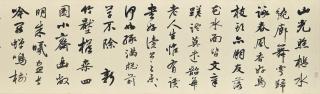 山光照檻水
繞廊舞雩歸
詠春風香好鳥
枝頭亦朋友落
花水面皆文章
蹉跎莫遣韶光
老人生惟有讀
書好讀書之樂
何如綠滿窗前
草不除 新
竹壓檐桑四
圍小齋幽敞
明朱曦晝長
吟罷蟬鳴樹